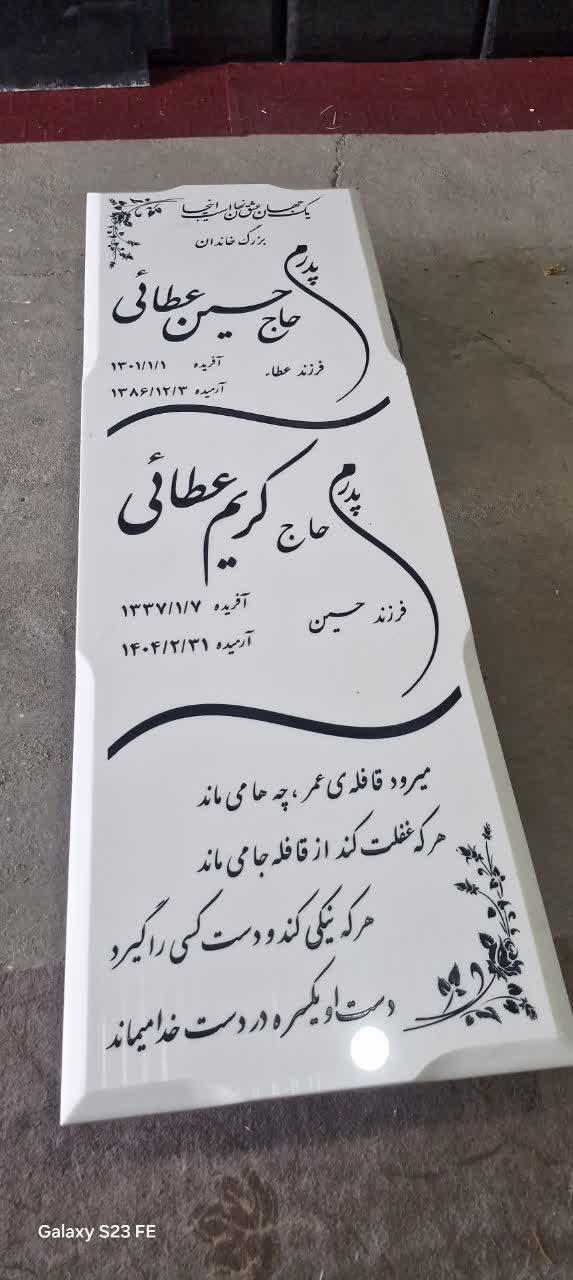 یک جهان عشق نهان است اینجا
بزرگ خاندان
پدرم
حاج حسین عطائی
فرزند عطاء
آفریده ۱۳۰۱/۱/۱
آرمیده ۱۳۸۶/۱۲/۳
پدرم
حاج کریم عطائی
فرزند حسین
آفریده ۱۳۳۷/۱/۷
آرمیده ۱۴۰۴/۲/۳۱
میرود قافله ی عمر ، چه ها می ماند
هر که غفلت کند از قافله جا می ماند
هر که نیکی کند و دست کسی را گیرد
دست او یکسره در دست خدا میماند
Galaxy S23 FE